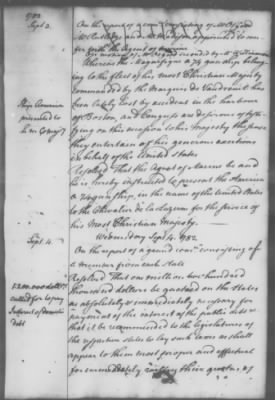 1782
Sept. 3.
On the report of a com: consisting of Mr Osgood
Mr Rutledge and Mr Madison appointed to con-
fer with the Agent of Marine
On motion of Mr Osgood seconded by Mr Williamson
Whereas the Magnifique a 74 gun ship belong-
ing to the fleet of his most Christian Majesty
commanded by the Marquis de Vaudreuil has
been lately lost by accident in the harbour
of Boston, and Congress are desirous of testi-
fying on this occasion to his Majesty the sense
they entertain of his generous exertions
in behalf of the United States
Ship America
presented to
he m Ch maj?
Resolved That the Agent of Marine be and
he is hereby instructed to present the America
a 74 gun ship, in the name of the United States
to the Chevalier de la Luzerne for the service of
his Most Christian Majesty.
Sept. 4.
Wednesday Sept 4. 1782.
On the report of a grand com: consisting of
a member from each State
1.200.000 dollrs
called for to pay
Interest of domestic
debt
Resolved That one million two hundred
thousand dollars be quotaed on the States
as absolutely & immediately necessary for
payment of the interest of the public debt &
that it be recommended to the legislatures of
the respective states to lay such taxes as shall
appear to them most proper and effectual
for immediately raising their quota, of